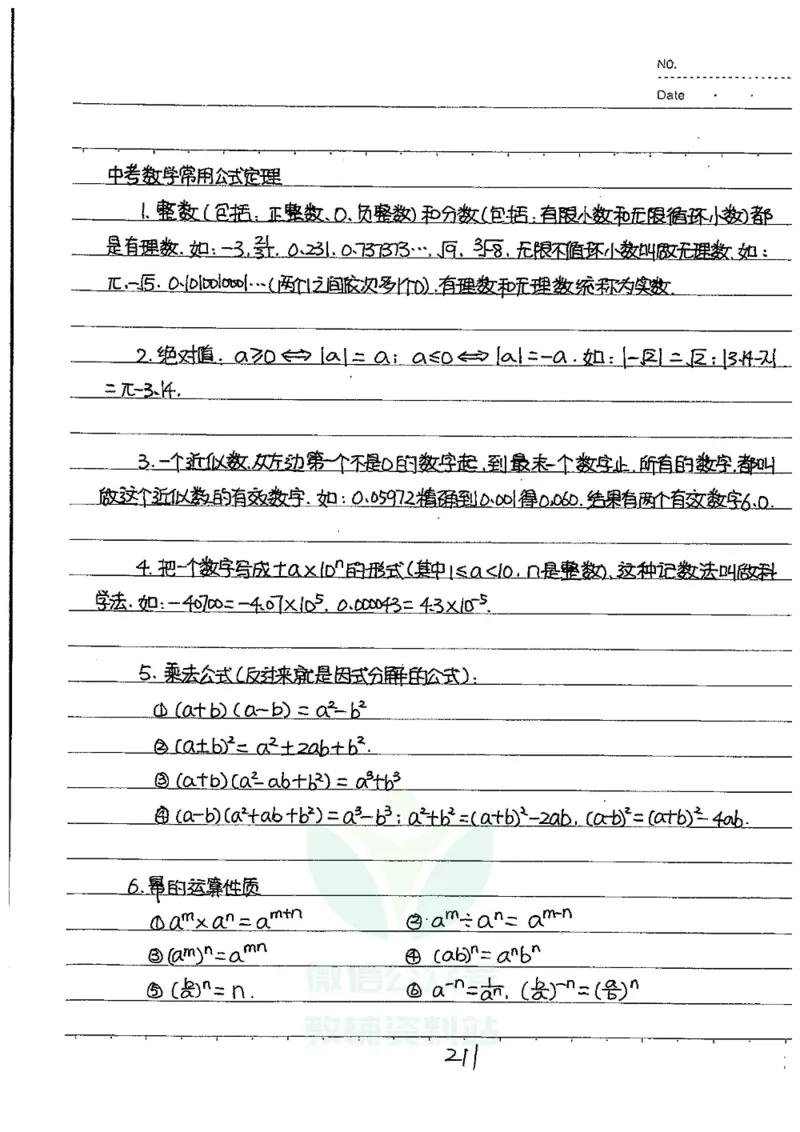 NO.
Date
中考数学常用公式定理
1. 整数(包括:正整数、0、负整数)和分数(包括:有限小数和无限循环小数)都
是有理数.如:-3, , 0.231, 0.737373…, √9, ³√-8. 无限不循环小数叫做无理数.如:
π,-√5, 0.1010010001…(两个1之间依次多1个0).有理数和无理数统称为实数.
2. 绝对值: a≥0 ⟺ |a|=a; a≤0 ⟺ |a|=-a. 如: |-√2|=√2; |3.14-π|
=π-3.14.
3. 一个近似数,从左边第一个不是0的数字起,到最末一个数字止,所有的数字,都叫
做这个近似数的有效数字.如:0.05972精确到0.001得0.060.结果有两个有效数字6.0.
4. 把一个数字写成±a×10ⁿ的形式(其中1≤a<10, n是整数),这种记数法叫做科
学法.如:-40700=-4.07×10⁵, 0.000043=4.3×10⁻⁵.
5. 乘法公式(反过来就是因式分解的公式):
① (a+b)(a-b)=a²-b²
② (a±b)²=a²±2ab+b².
③ (a+b)(a²-ab+b²)=a³+b³
④ (a-b)(a²+ab+b²)=a³-b³; a²+b²=(a+b)²-2ab, (a-b)²=(a+b)²-4ab.
6. 幂的运算性质
① aᵐ×aⁿ=aᵐ⁺ⁿ ② aᵐ÷aⁿ=aᵐ⁻ⁿ
③ (aᵐ)ⁿ=aᵐⁿ ④ (ab)ⁿ=aⁿbⁿ
⑤ (b/a)ⁿ=n. ⑥ a⁻ⁿ=1/aⁿ, (b/a)⁻ⁿ=(a/b)ⁿ
微信公众号
教辅资料站
211